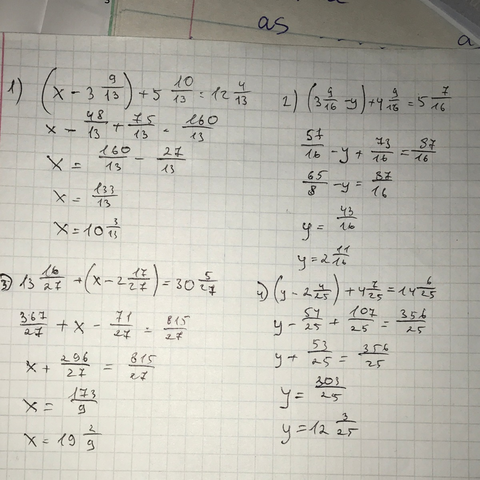 as
a
1) (x - 3 9/13) + 5 10/13 = 12 4/13
x - 48/13 + 75/13 = 160/13
x = 160/13 - 27/13
x = 133/13
x = 10 3/13
2) (3 9/16 - y) + 4 9/16 = 5 7/16
57/16 - y + 73/16 = 87/16
65/8 - y = 87/16
y = 43/16
y = 2 11/16
3) 13 16/27 + (x - 2 17/27) = 30 5/27
367/27 + x - 71/27 = 815/27
x + 296/27 = 815/27
x = 173/9
x = 19 2/9
4) (y - 2 4/25) + 4 7/25 = 14 6/25
y - 54/25 + 107/25 = 356/25
y + 53/25 = 356/25
y = 303/25
y = 12 3/25